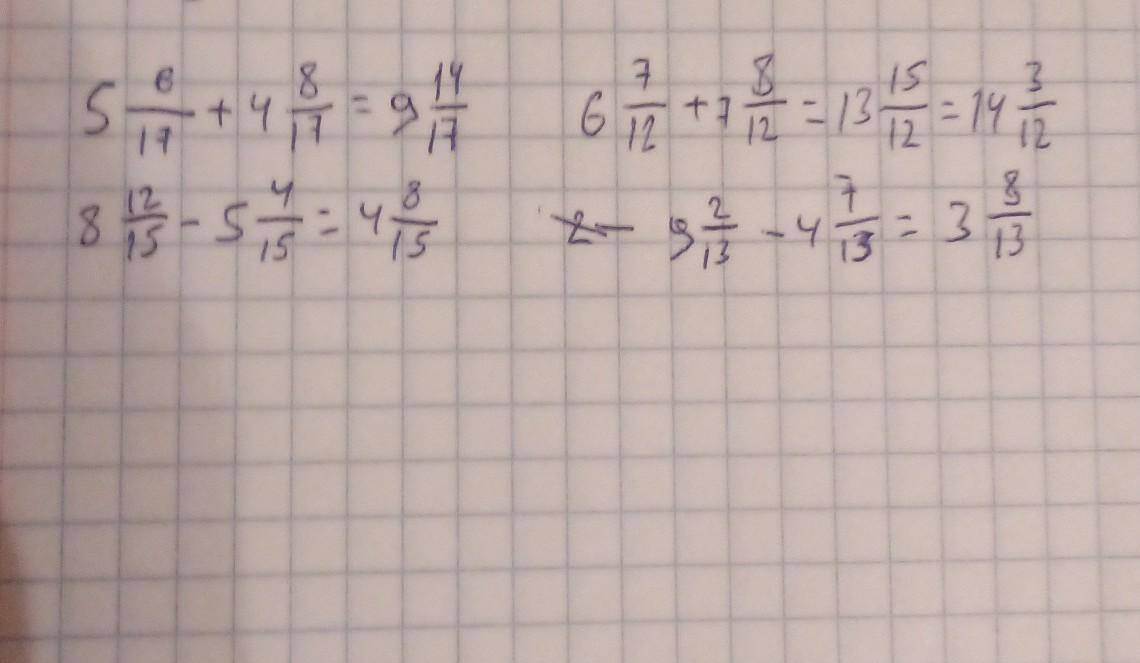 5 6/17 + 4 8/17 = 9 14/17
6 7/12 + 7 8/12 = 13 15/12 = 14 3/12
8 12/15 - 5 4/15 = 4 8/15
9 2/13 - 4 7/13 = 3 8/13